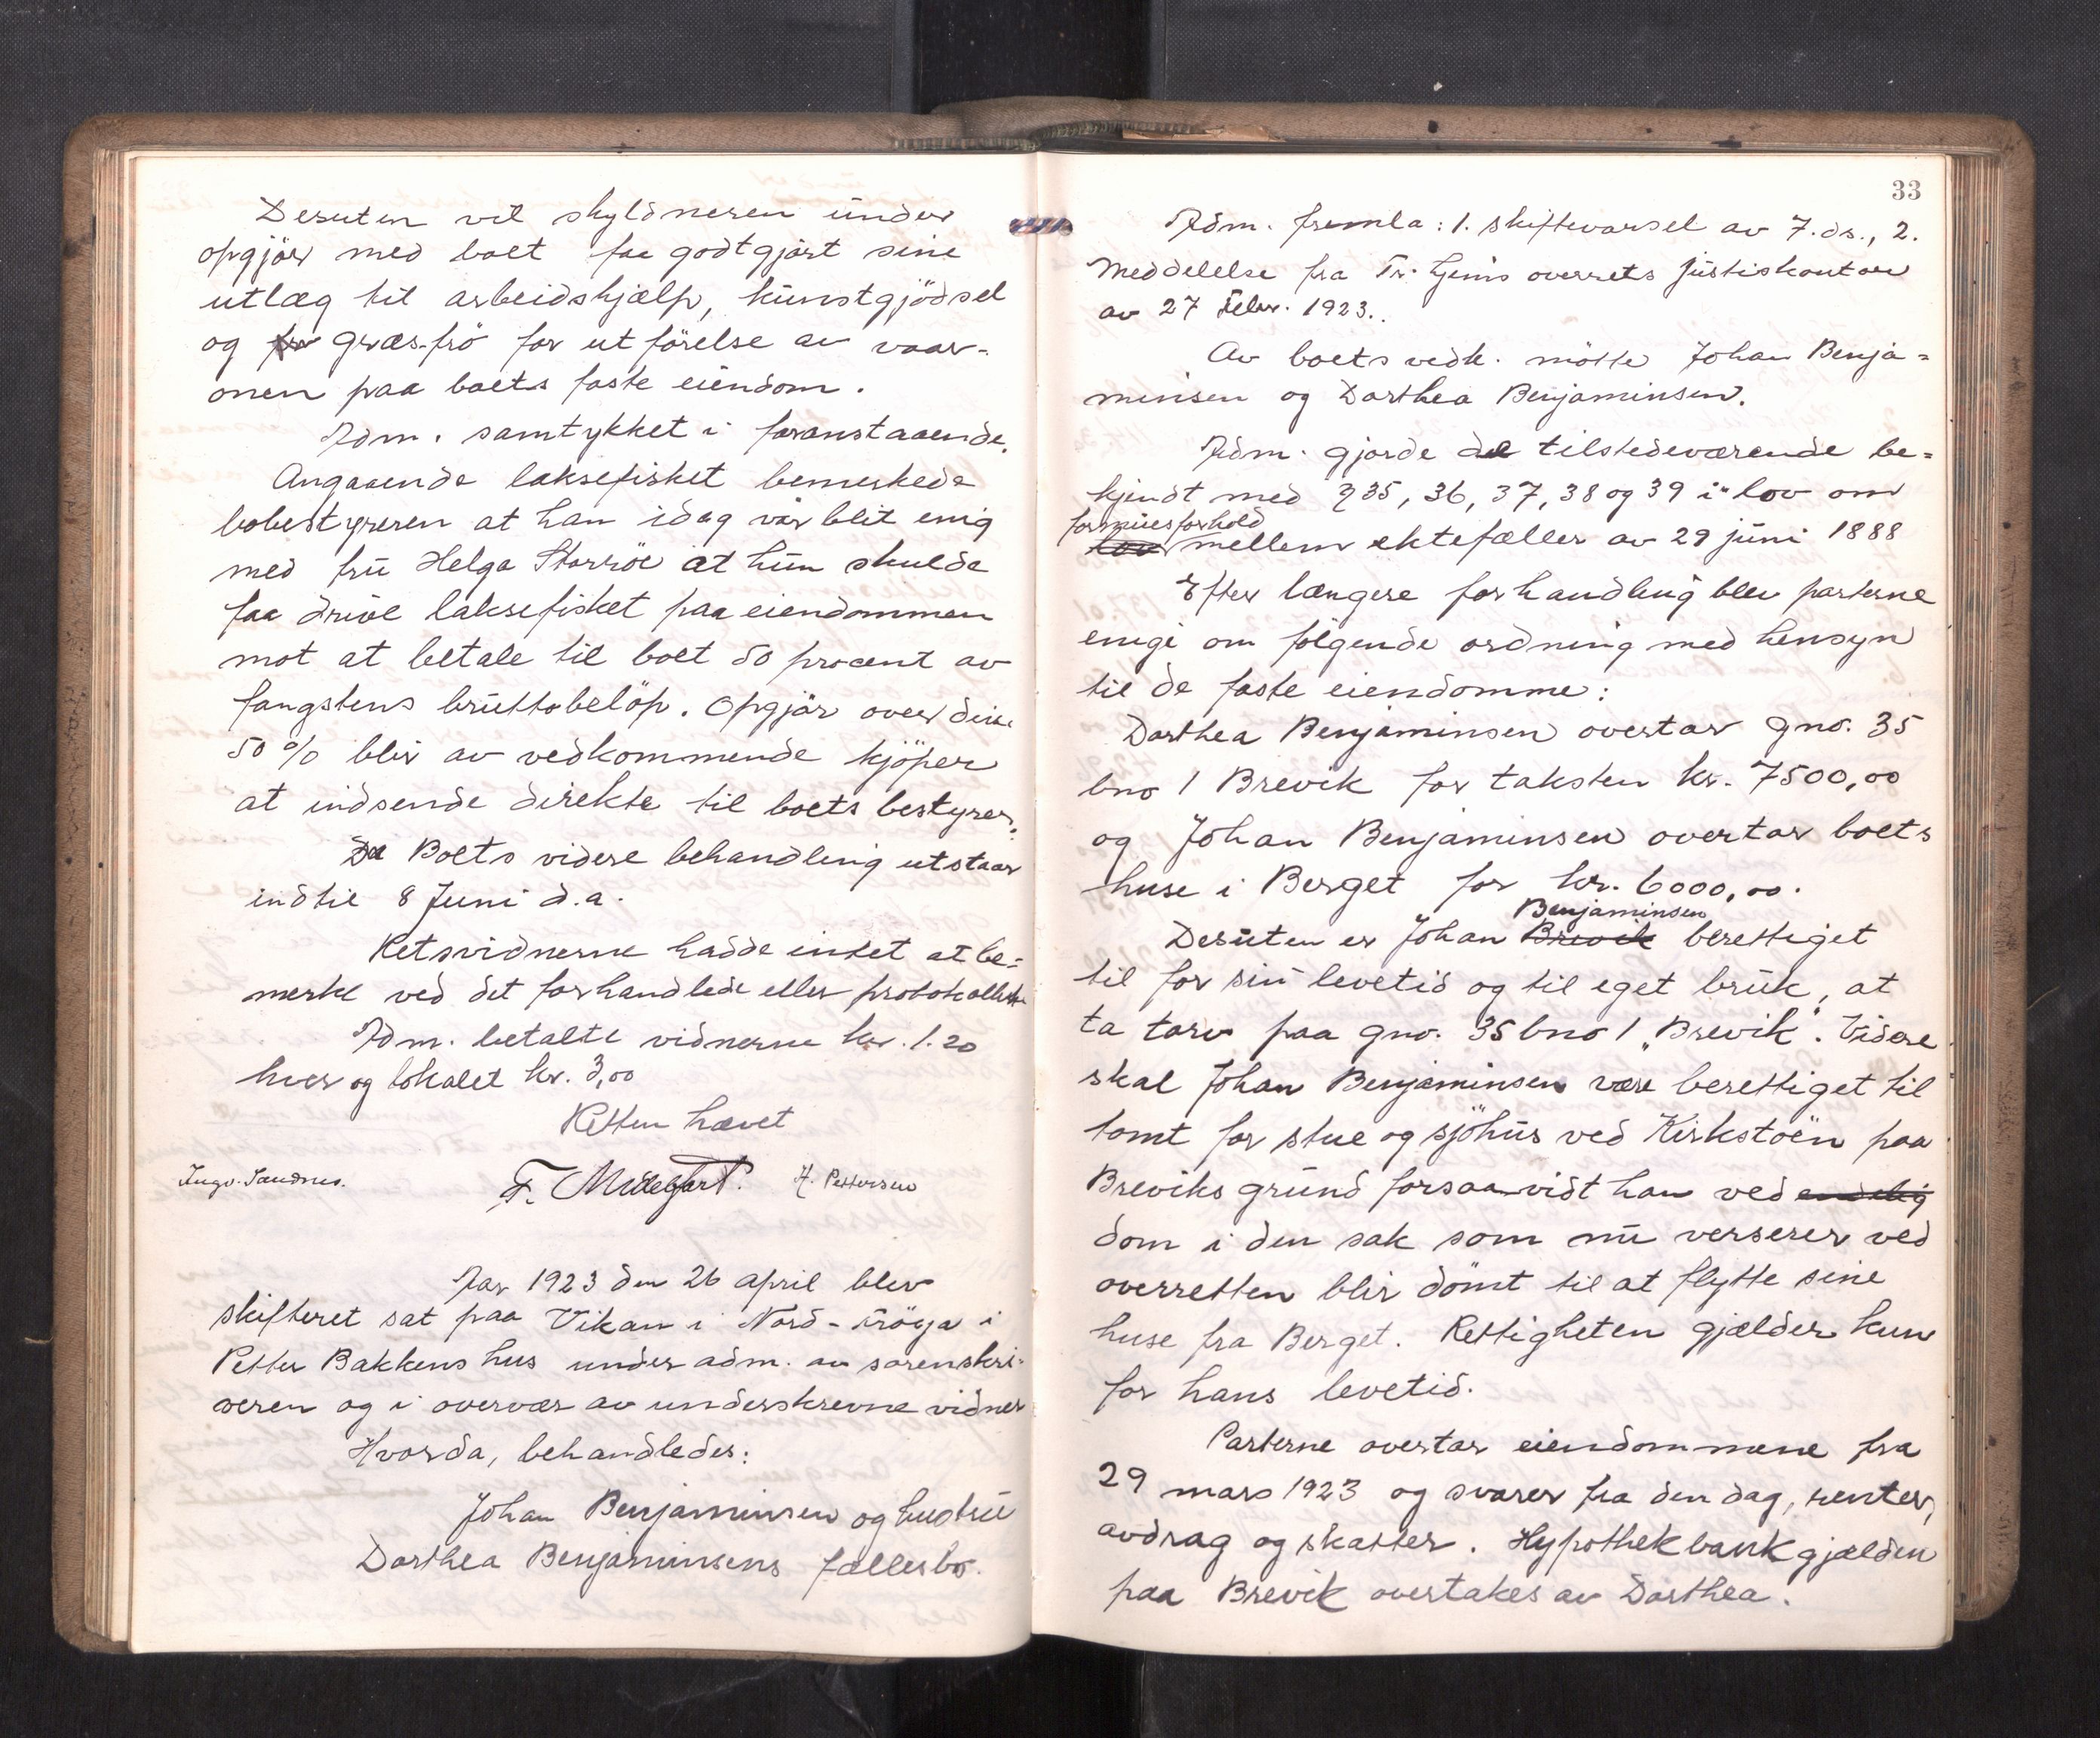 Desuten vil skyldneren under
opgjör med boet faa godtgjort sine
utlæg til arbeidshjælp, kunstgjödsel
og græs-frö for utförelse av vaar-
onen paa boets faste eiendom.
Adm. samtykket i foranstaaende.
Angaaende laksefisket bemerkede
bobestyreren at han idag var blit enig
med fru Helga Storröe at hun skulde
faa drive laksefisket paa eiendommen
mot at betale til boet 50 procent av
fangstens bruttobelöp. Opgjör over disse
50% blir av vedkommende kjöper
at indsende direkte til boets bestyrer.
Boets videre behandling utstaar
indtil 8 Juni d.a.
Retsvidnerne hadde intet at be=
merke ved det forhandlede eller protokollerte
Adm. betalte vidnerne kr. 1.20
hver og lokalet kr. 3,00
Retten hævet
Ingv. Sandnes. F. Midelfart. H. Pettersen
Aar 1923 den 26 april blev
skifteret sat paa Vikan i Nord-Fröya i
Petter Bakkens hus under adm. av sorenskri-
veren og i overvær av underskrevne vidner
Hvorda, behandledes:
Johan Benjaminsen og hustru
Dorthea Benjaminsens fællesbo.
33
Adm. fremla: 1. skiftevarsel av 7. ds., 2.
Meddelelse fra Tr.hjems overrets justiskontor
av 27 Febr. 1923.
Av boets vedk. mötte Johan Benja=
minsen og Dorthea Benjaminsen.
Adm. gjorde de tilstedeværende be=
kjendt med § 35, 36, 37, 38 og 39 i lov om
formuesforhold
lov mellem ektefæller av 29 juni 1888
Efter længere forhandling blev parterne
enige om følgende ordning med hensyn
til de faste eiendomme:
Dorthea Benjaminsen overtar gno. 35
bno 1 Brevik for taksten kr. 7500,00
og Johan Benjaminsen overtar boets
huse i Berget for kr. 6000,00.
Benjaminsen
Desuten er Johan Brevik berettiget
til for sin levetid og til eget bruk, at
ta torv paa gno. 35 bno 1 „Brevik“. Videre
skal Johan Benjaminsen være berettiget til
tomt for stue og sjöhus ved Kirkstöen paa
Breviks grund forsaavidt han ved endelig
dom i den sak som nu verserer ved
overretten blir dömt til at flytte sine
huse fra Berget. Rettigheten gjælder kun
for hans levetid.
Parterne overtar eiendommene fra
29 mars 1923 og svarer fra den dag, renter,
avdrag og skatter. Hypothekbankgjælden
paa Brevik overtakes av Dorthea.